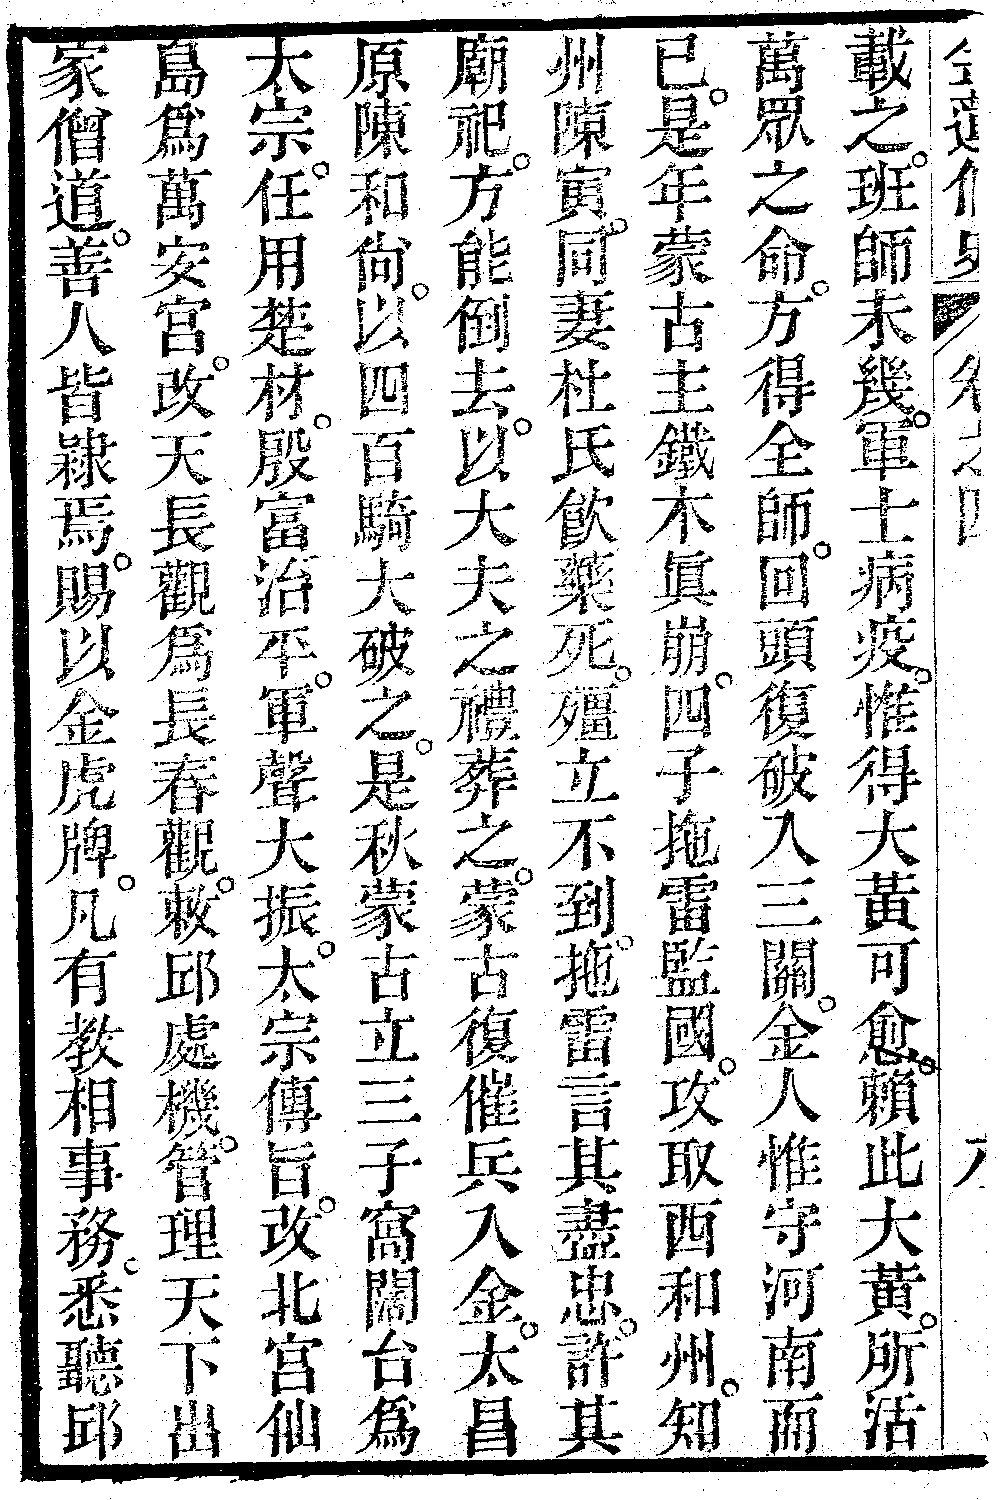 載之。班師未幾。軍士病疫。惟得大黃可愈。賴此大黃。所活
萬眾之命。方得全師。回頭復破入三關。金人惟守河南而
已。是年蒙古主鐵木眞崩。四子拖雷監國。攻取西和州。知
州陳寅。同妻杜氏飮藥死。殭立不到。拖雷言其盡忠。許其
廟祀。方能倒去。以大夫之禮葬之。蒙古復催兵入金。太昌
原陳和尙。以四百騎大破之。是秋蒙古立三子窩闊台爲
太宗。任用楚材。殷富治平。軍聲大振。太宗傳旨。改北宮仙
島爲萬安宮。改天長觀爲長春觀。敕邱處機。管理天下出
家僧道。善人皆隸焉。賜以金虎牌。凡有教相事務。悉聽邱